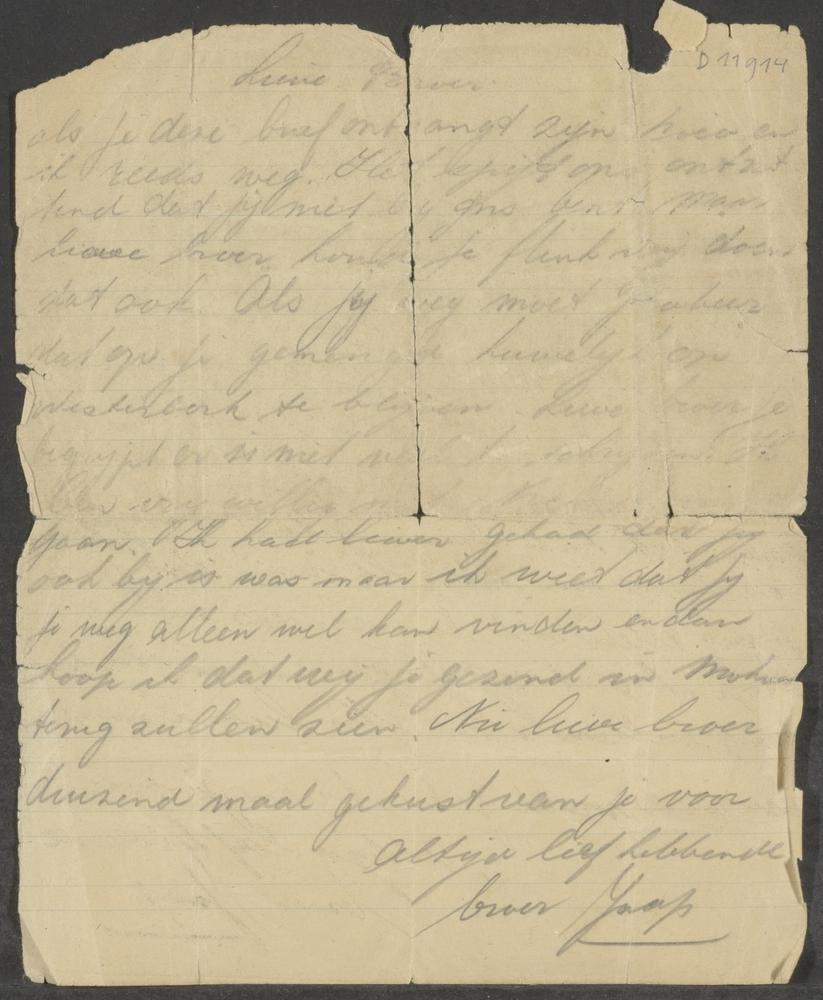 D 11914
Lieve Broer.
als je deze brief ontvangt zijn en
ik reeds weg. Het spijt ons ontzet
tend dat jij niet bij ons bent maar
lieve broer houdt je flink wij doen
dat ook. Als jij weg moet probeer
dat op je gemengde huwelijk in
Westerbork te blijven. Lieve broer je
begrijpt er is niet veel te schrijven. Ik
ben
gaan. Ik had liever gehad dat jij
ook bij is was maar ik weet dat jij
je weg alleen wel kan vinden en dan
hoop ik dat wij je gezond in Mokum
terug zullen zien. Nu lieve broer
duizend maal gekust van je voor
altijd lief hebbende
broer Jaap